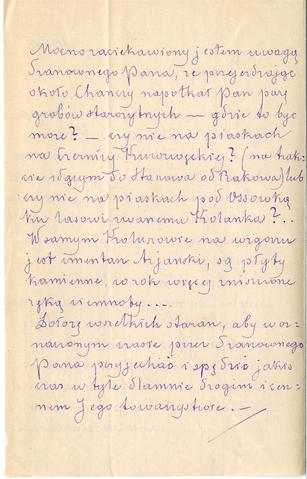 Mocno zaciekawiony jestem uwagą
Szanownego Pana, że przejeżdżając
około Chańczy napotkał Pan parę
grobów starożytnych — gdzie to być
może? — czy nie na piaskach
na Czernicy Kurozwęckiej? (na trak-
cie idącym do Staszowa od Rakowa) lub
czy nie na piaskach pod Ossówką
ku lasowi zwanemu Kolanka?..
W samym na wzgórzu
jest cmentarz Arjański, są płyty
kamienne, co rok więcej zniszczone
ręką ciemnoty....
Dołożę wszelkich starań, aby w oz-
naczonym czasie przez Szanownego
Pana przyjechać i spędzić jakiś
czas w tyle dla mnie drogim i cen-
nem Jego towarzystwie. —